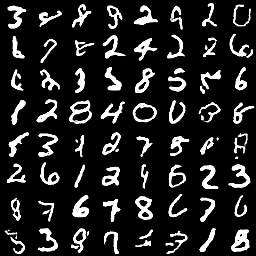 3 8 8 2 9 2 0
6 7 2 4 2 2 6
6 3 3 5 8 5 5 6
1 2 8 4 0 0 8
5 3 1 2 7 5 8
2 6 1 2 4 6 2 3
8 7 6 7 8 6 7 6
5 3 9 7 1 8